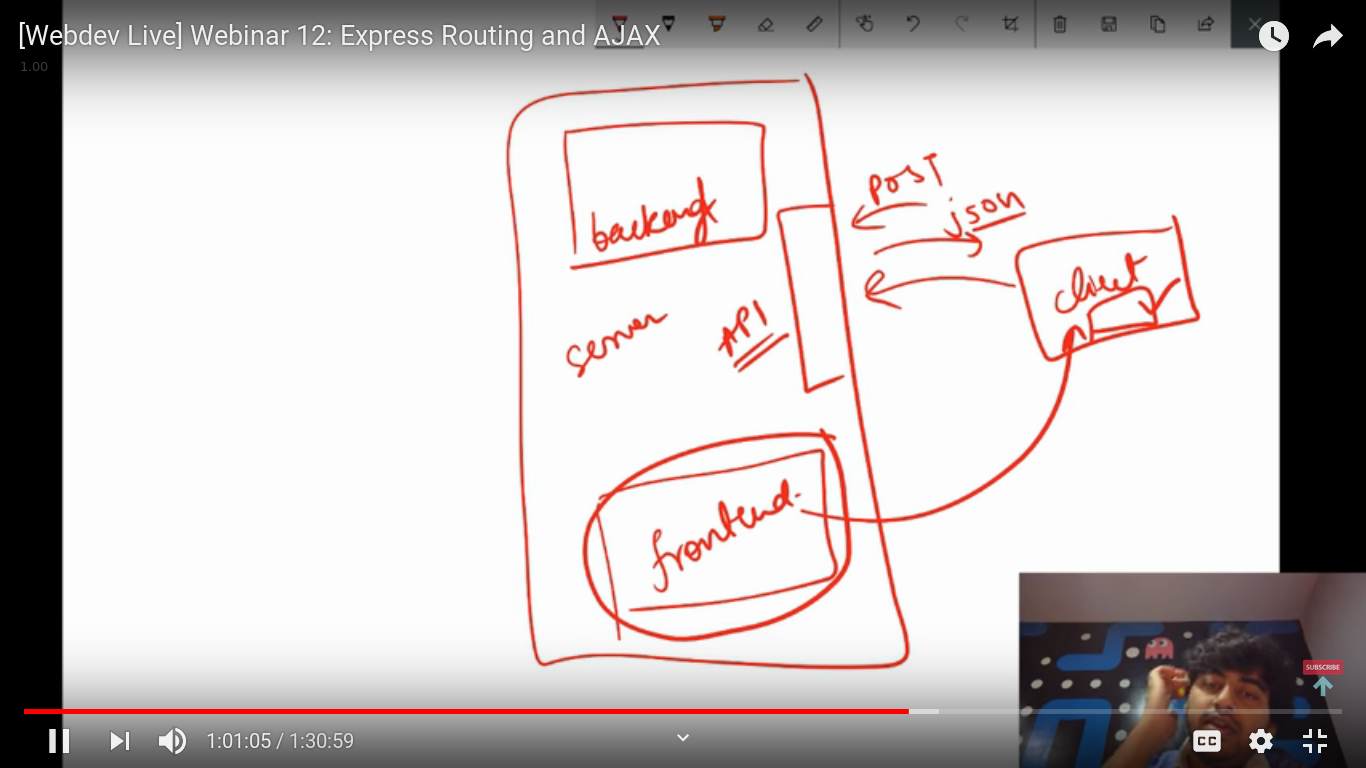 [Webdev Live] Webinar 12: Express Routing and AJAX
1.00
backend
POST
json
client
server
API
frontend
SUBSCRIBE
1:01:05 / 1:30:59
CC